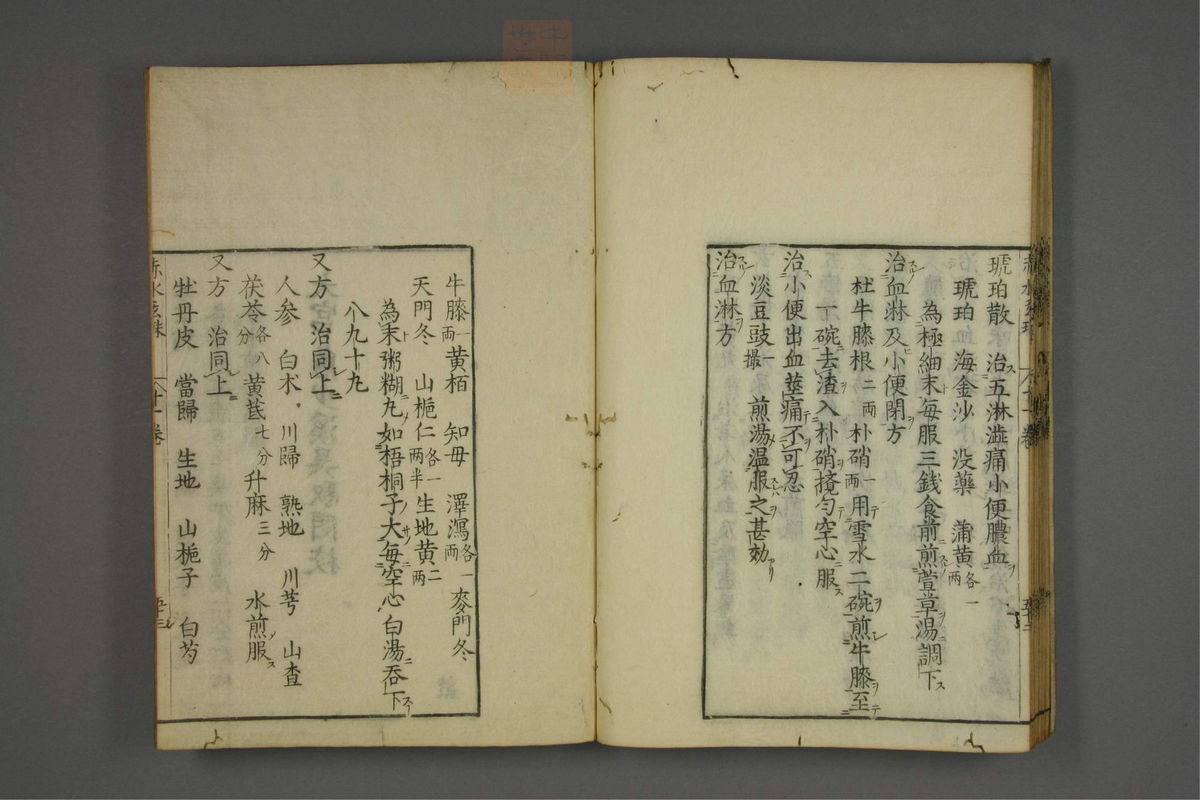 琥珀散　治五淋澁痛小便膿血
琥珀　海金沙　没藥　蒲黄各一兩
為極細末每服三錢食前煎萱草湯調下
治血淋及小便閉方
杜牛膝根二兩　朴硝一兩　用雪水二碗煎牛膝至
一碗去渣入朴硝攪勻空心服
治小便出血莖痛不可忍
淡豆豉一撮　煎湯温服之甚効
治血淋方
牛膝一兩　黄栢　知母　澤瀉各一兩　麥門冬
天門冬　山梔仁各一兩半　生地黄二兩
為末粥糊丸如梧桐子大每空心白湯吞下
八九十丸
又方　治同上
人参　白朮　川歸　熟地　川芎　山查
茯苓各八分　黄芪七分　升麻三分　水煎服
又方　治同上
牡丹皮　當歸　生地　山梔子　白芍
赤水玄珠　十一卷